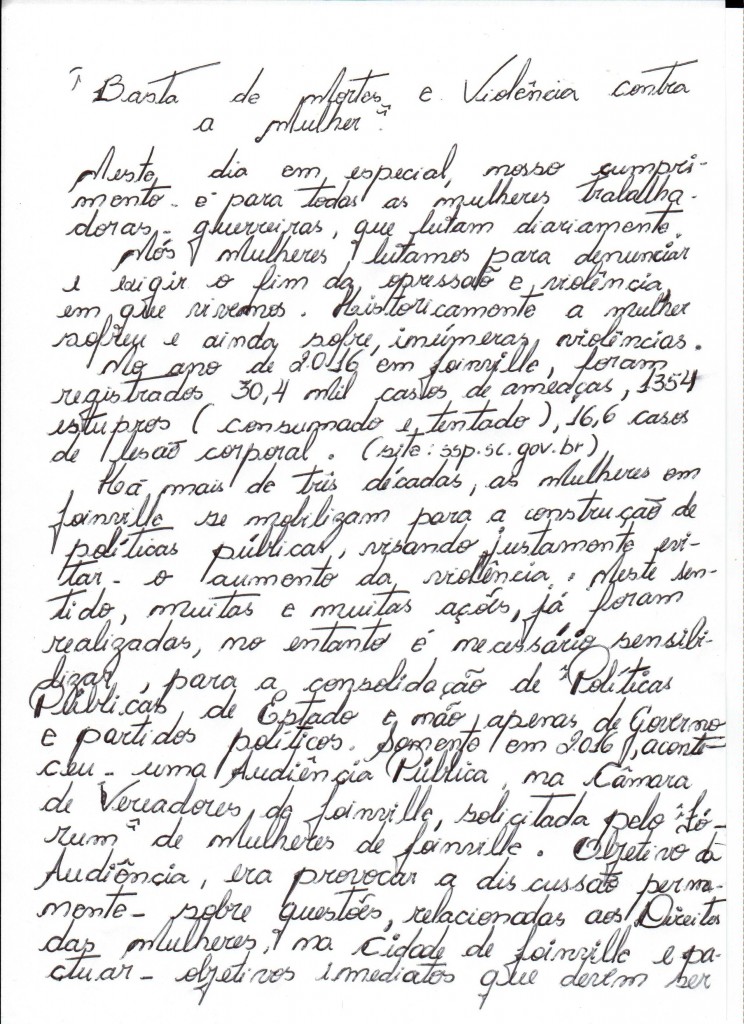 "Basta de Mortes e Violência contra
a Mulher"
Neste dia em especial, nosso cumpri-
mento - é para todas as mulheres trabalha-
doras - guerreiras, que lutam diariamente.
Nós mulheres lutamos para denunciar
e exigir o fim da opressão e violência,
em que vivemos. Historicamente a mulher
sofreu e ainda sofre, inúmeras violências.
No ano de 2.016 em Joinville, foram
registrados 30,4 mil casos de ameaças, 1354
estupros (consumado e tentado), 16,6 casos
de lesão corporal. (site: ssp.sc.gov.br)
Há mais de três décadas, as mulheres em
Joinville se mobilizam para a construção de
políticas públicas, visando justamente evi-
tar - o aumento da violência. Neste sen-
tido, muitas e muitas ações, já foram
realizadas, no entanto é necessário sensibi-
lizar, para a consolidação de "Políticas
Públicas, de Estado e não apenas de Governo
e partidos políticos. Somente em 2.016, aconte-
ceu - uma Audiência Pública, na Câmara
de Vereadores de Joinville, solicitada pelo "Fó-
rum" de mulheres de Joinville. Objetivo da
Audiência, era provocar a discussão perma-
nente - sobre questões, relacionadas aos Direitos
das mulheres, na Cidade de Joinville e pa-
ctuar - objetivos imediatos que devem ser